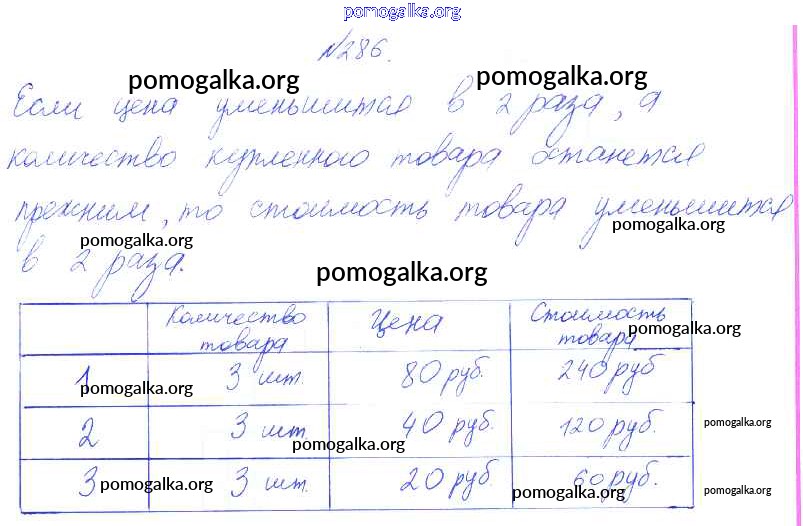 pomogalka.org
№286.
pomogalka.org pomogalka.org
Если цена уменьшится в 2 раза, а
количество купленного товара останется
прежним, то стоимость товара уменьшится
pomogalka.org pomogalka.org
в 2 раза.
pomogalka.org
Количество товара Цена Стоимость товара
pomogalka.org
1 3 шт. 80 руб. 240 руб
pomogalka.org
2 3 шт. 40 руб. 120 руб.
pomogalka.org
pomogalka.org
3 3 шт. 20 руб. 60 руб.
pomogalka.org pomogalka.org pomogalka.org